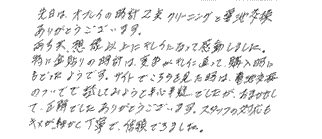 先日は、オブレイの時計2点クリーニングと電池交換
ありがとうございます。
あらゆ、想像以上にキレイになって感動しました。
特に金貼りの時計は、重さがキレイに直って、購入時に
もどったようです。サイトでこちらを見た時は、電池交換
のついでで試してみようと半心半疑でしたが、おまかせし
て、正解でした ありがとうございます。スタッフの対応も
キメが細かく丁寧で、信頼できました。